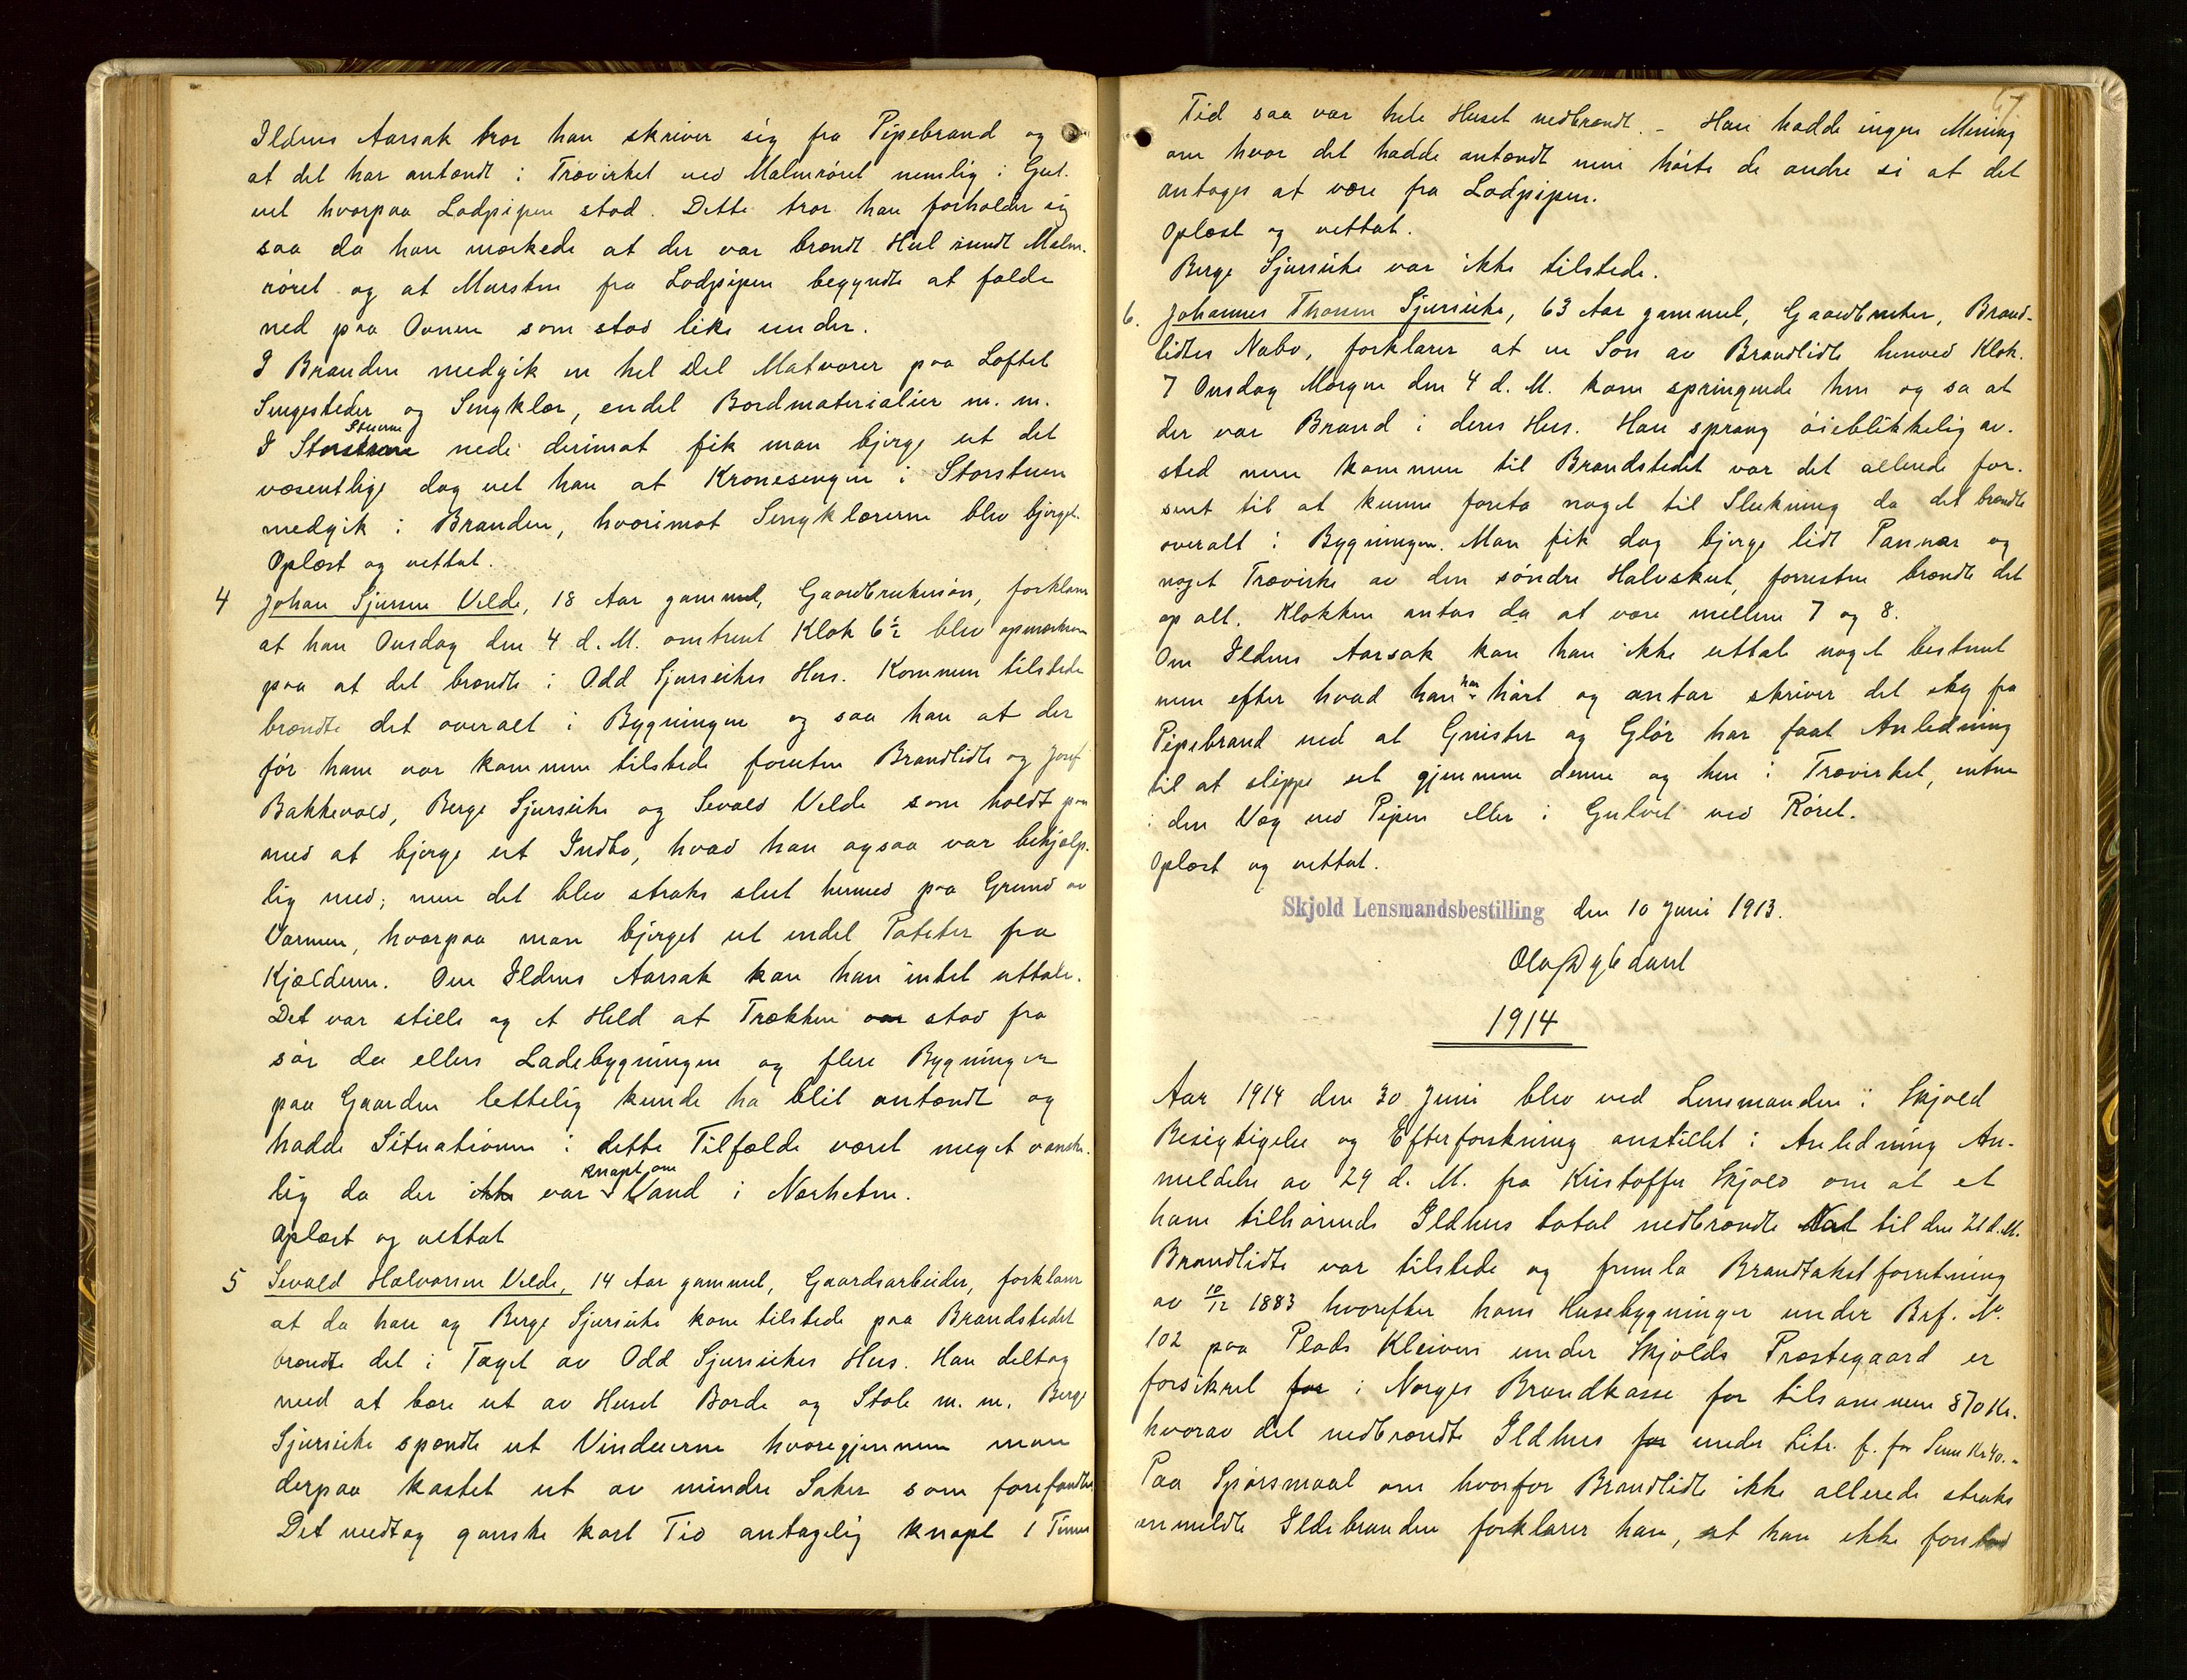 Ildens Aarsak tror han skriver sig fra Pipebrand og
at det har antændt i Trævirket ved Malmrøret nemlig i Gul-
vet hvorpaa Lodpipen stod. Dette tror han forholder sig
saa da han mærkede at der var brændt Hul rundt Malm-
røret og at Mursten fra Lodpipen begyndte at falde
ned paa Ovnen som stod like under.
I Branden medgik en hel Del Matvarer paa Loftet
Sengesteder og Sengklær, endel Bordmaterialier m. m.
I Stuerne nede derimot fik man bjerge ut det
væsentlige dog vet han at Kronesengen i Storstuen
medgik i Branden, hvorimot Sengklærerne blev bjerget.
Oplæst og vettat.
4 Johan Sjursen Velde, 18 Aar gammel, Gaardbrukersøn, forklarer
at han Onsdag den 4 d. M. omtrent Klok 6½ blev opmerksom
paa at det brændte i Odd Sjurseikes Hus. Kommen tilstede
brændte det overalt i Bygningen og saa han at der
før ham var kommen tilstede foruten Brandlidte og Josef
Bakkevold, Berge Sjurseike og Sevald Velde som holdt paa
med at bjerge ut Indbo, hvad han ogsaa var behjælp-
lig med; men det blev straks slut hermed paa Grund av
Varmen, hvorpaa man bjerget ut endel Poteter fra
Kjælderen. Om Ildens Aarsak kan han intet uttale.
Det var stille og et Held at Trækken stod fra
sør da ellers Ladebygningen og flere Bygninger
paa Gaarden lettelig kunde ha blit antændt og
hadde Situationen i dette Tilfælde været meget vanske-
lig da der var knapt om Vand i Nærheten.
Oplæst og vettat
5 Sevald Halvorsen Velde, 14 Aar gammel, Gaardsarbeider, forklarer
at da han og Berge Sjurseike kom tilstede paa Brandstedet
brændte det i Taget av Odd Sjurseikes Hus. Han deltog
med at bære ut av Huset Borde og Stole m. m. Berge
Sjurseike spændte ut Vinduerne hvoregjennem man
derpaa kastet ut av mindre Saker som forefandtes
Det medtog ganske kort Tid antagelig knapt 1 Times
67
Tid saa var hele Huset nedbrændt. - Han hadde ingen Mening
om hvor det hadde antændt men hørte de andre si at det
antoges at være fra Lodpipen.
Oplæst og vettat.
Berge Sjurseike var ikke tilstede.
6. Johannes Thomsen Sjurseike, 63 Aar gammel, Gaardbruker, Brand-
lidtes Nabo, forklarer at en Søn av Brandlidte henved Klok.
7 Onsdag Morgen den 4 d. M. kom springende hen og sa at
der var Brand i deres Hus. Han sprang øieblikkelig av-
sted men kommen til Brandstedet var det allerede for-
sent til at kunne foreta noget til Slukning da det brændte
overalt i Bygningen. Man fik dog bjerge lidt Pannær og
noget Trævirke av den søndre Halvskut, forresten brændte det
op alt. Klokken antas da at være mellem 7 og 8.
Om Ildens Aarsak kan han ikke uttale noget bestemt
men efter hvad han har hørt og antar skriver det sig fra
Pipebrand ved at Gnister og Glør har faat Anledning
til at slippe ut gjennem denne og hen i Trævirket, enten
i den Væg ved Pipen eller i Gulvet ved Røret.
Oplæst og vettat.
Skjold Lensmandsbestilling den 10 Juni 1913.
Olaf Dybdahl
1914
Aar 1914 den 30 Juni blev ved Lensmanden i Skjold
Besigtigelse og Efterforskning anstillet i Anledning An-
meldelse av 29 d. M. fra Kristoffer Skjold om at et
ham tilhørende Ildhus total nedbrændte Nat til den 21 d. M.
Brandlidte var tilstede og fremla Brandtakstforretning
av 10/12 1883 hvorefter hans Husebygninger under Brf. No
102 paa Plads Kleiven under Skjolds Prestegaard er
forsikret for i Norges Brandkasse for tilsammen 870 Kr.
hvorav det nedbrændte Ildhus for under Litr. f. for Sum Kr 40.-
Paa Spørsmaal om hvorfor Brandlidte ikke allerede straks
anmeldte Ildebranden forklarer han, at han ikke forstod